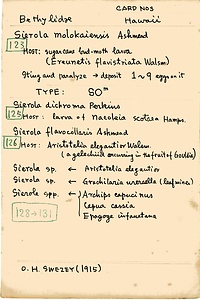 CARD NO 3
Bethylidae Hawaii
Sierola molokaiensis Ashmead
123 Host: sugarcane bud-moth larva
(Ereunetis flavistriata Walsm)
Sting and paralyze → deposit 1~9 eggs on it
TYPE: 80m
Sierola dichroma Perkins
125 Host: larva of Nacoleia scotaea Hamps.
Sierola flavocollaris Ashmead
126 Host: Aristotelia elegantior Walsm.
(a gelechiid occurring in the fruit of Gouldia)
Sierola sp. ← Aristotelia elegantior
Sierola sp. ← Gracilaria ureraella (leafminer)
Sierola spp. ← Archips capucinus
Capua cassia
Epagoge infaustana
128→131
O. H. SWEZEY (1915)